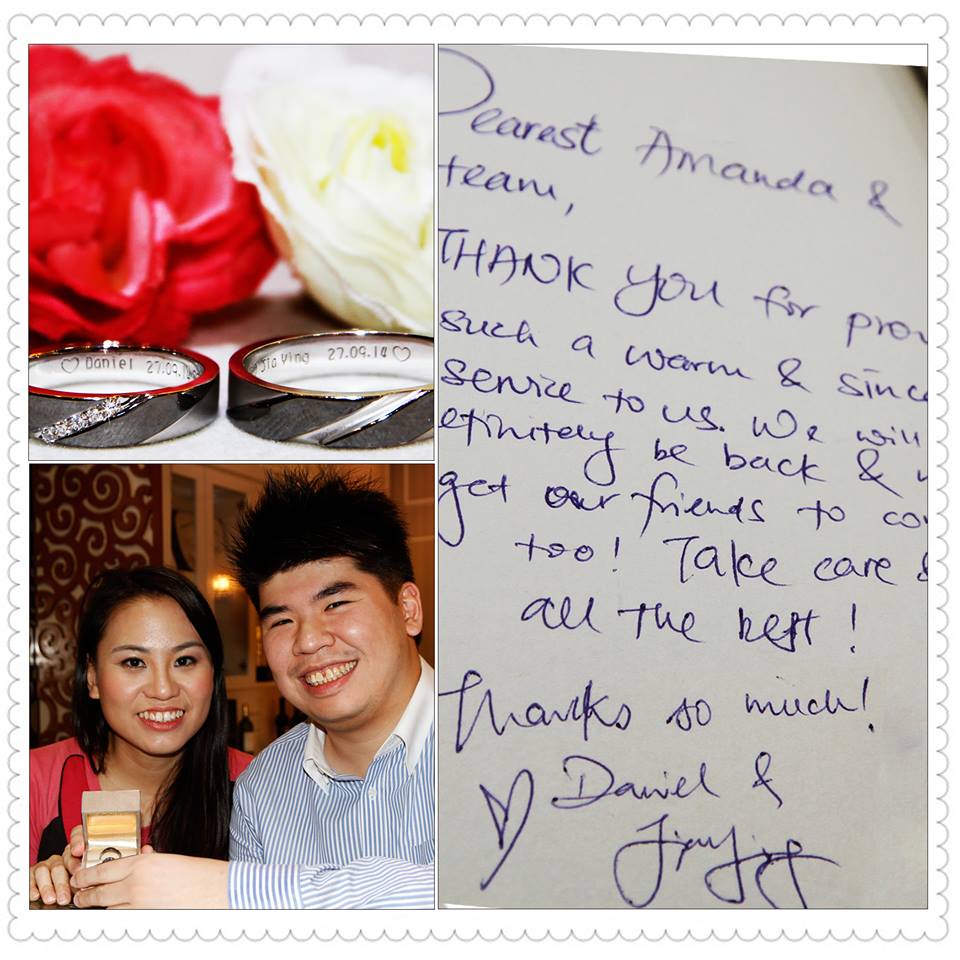 Daniel 27.09.14
Ying 27.09.14
Dearest Amanda &
team,
THANK you for prov
such a warm & since
service to us. We will
efinitely be back &
get our friends to co
too! Take care &
all the best!
Thanks so much!
Daniel &